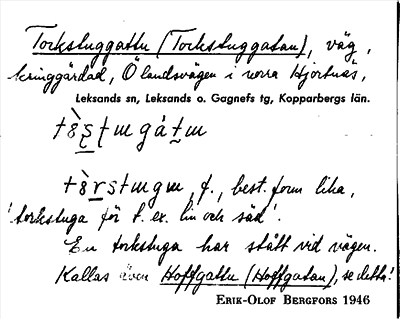 Torkstuggattu (Torkstuggatan), väg,
kringgärdad, Ölandsvägen i norra Hjortnäs,
Leksands sn, Leksands o. Gagnefs tg, Kopparbergs län.
f., best. form lika,
'torkstuga för t. ex. lin och säd'.
En torkstuga har stått vid vägen.
Kallas även Hoffgattu (Hoffgatan), se detta!
ERIK-OLOF BERGFORS 1946